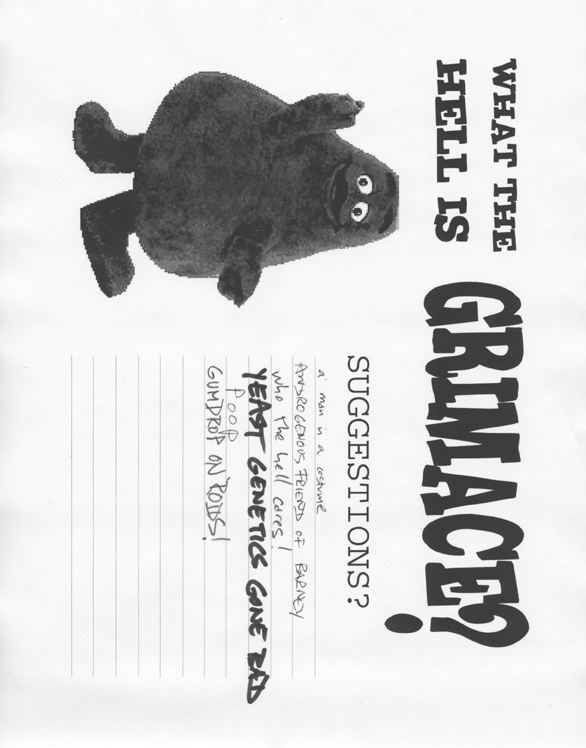 WHAT THE
HELL IS
GRIMACE?
SUGGESTIONS?
a man in a costume
ANDROGENOUS FRIEND OF BARNEY
who the hell cares!
YEAST GENETICS GONE BAD
POOP
GUMDROP ON ROIDS!